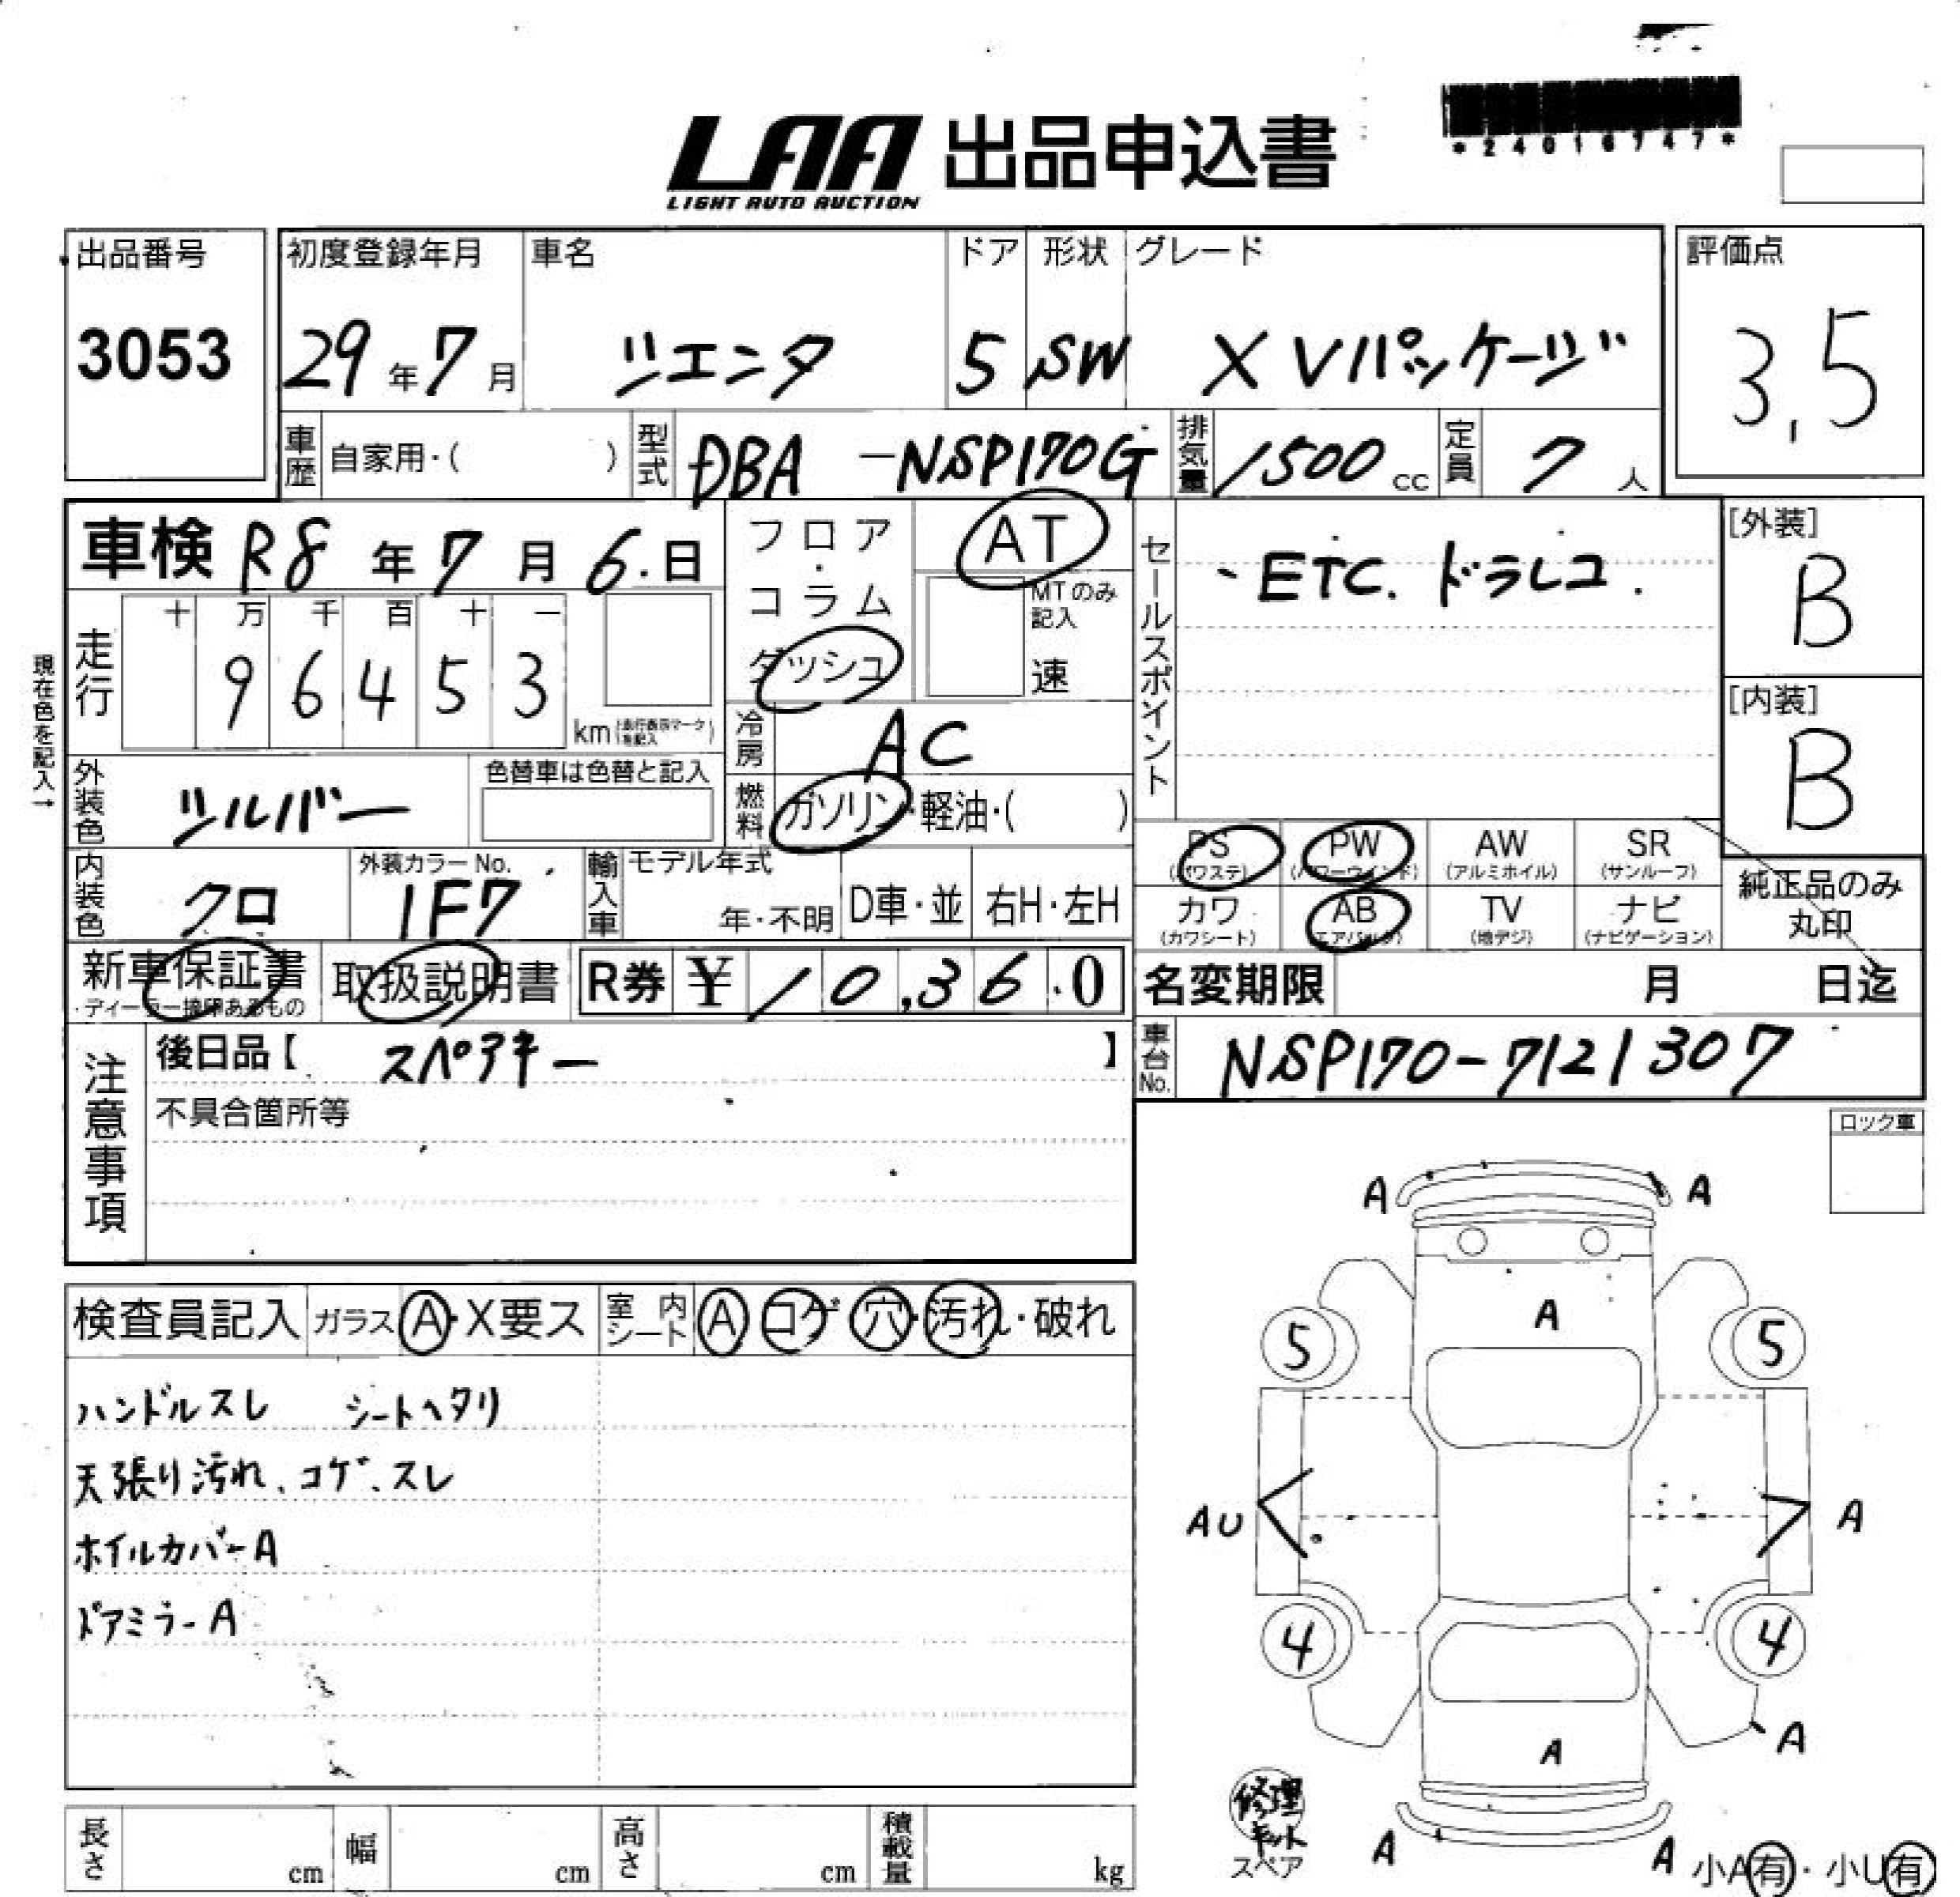 *24016747*
LAA 出品申込書
LIGHT AUTO AUCTION
出品番号 初度登録年月 車名 ドア 形状 グレード 評価点
3053 29年7月 シエンタ 5 SW X Vパッケージ 3,5
車歴 自家用・( ) 型式 DBA -NSP170G 排気量 1500cc 定員 7人
車検 R8年7月6日 フロア・コラム ダッシュ AT MTのみ記入 速
セールスポイント ETC. ドラレコ.
[外装] B
[内装] B
現在色を記入→
走行 十 万 千 百 十 一
9 6 4 5 3 km
冷房 AC
外装色 シルバー 色替車は色替と記入
燃料 ガソリン・軽油・( )
PS (パワステ) PW (パワーウインド) AW (アルミホイル) SR (サンルーフ)
カワ (カワシート) AB (エアバック) TV (地デジ) ナビ (ナビゲーション)
純正品のみ丸印
内装色 クロ 外装カラーNo. 1F7 輸入車 モデル年式 年・不明 D車・並 右H・左H
新車保証書 取扱説明書 R券 ¥10,360
・ディーラー捺印あるもの
名変期限 月 日迄
車台No. NSP170-7121307
注意事項 後日品【 スペアキー 】
不具合箇所等
ロック車
検査員記入 ガラス A・X要ス 室内シート A コゲ 穴・汚れ・破れ
ハンドルスレ シートヘタリ
天張り汚れ、コゲ、スレ
ホイルカバーA
ドアミラーA
A A
A
5 5
AU A
4 4
A
A
修理キット
スペア
A A 小A有・小U有
長さ cm 幅 cm 高さ cm 積載量 kg